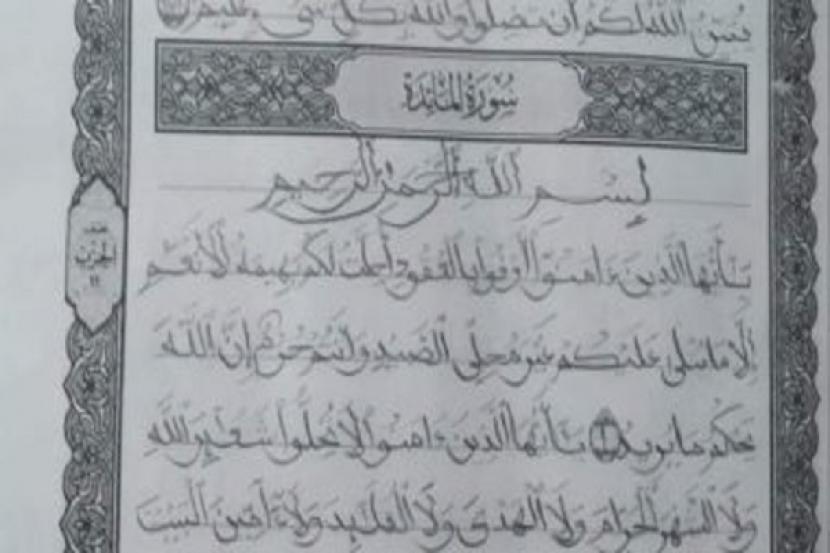 يبين الله لكم أن تضلوا والله بكل شىء عليم
سُورَةُ المَائِدَة
بِسْمِ اللَّهِ الرَّحْمَٰنِ الرَّحِيمِ
يَٰأيها الذين ءامنوا أوفوا بالعقود أحلت لكم بهيمة الأنعم
إلا ما يتلى عليكم غير محلى الصيد وأنتم حرم إِنَّ اللَّهَ
يحكم ما يريد ١ يَٰأيها الذين ءامنوا لا تحلوا شعَٰئر الله
ولا الشهر الحرام ولا الهدى ولا القلَٰئد ولا ءامين البيت
الحزب
١١